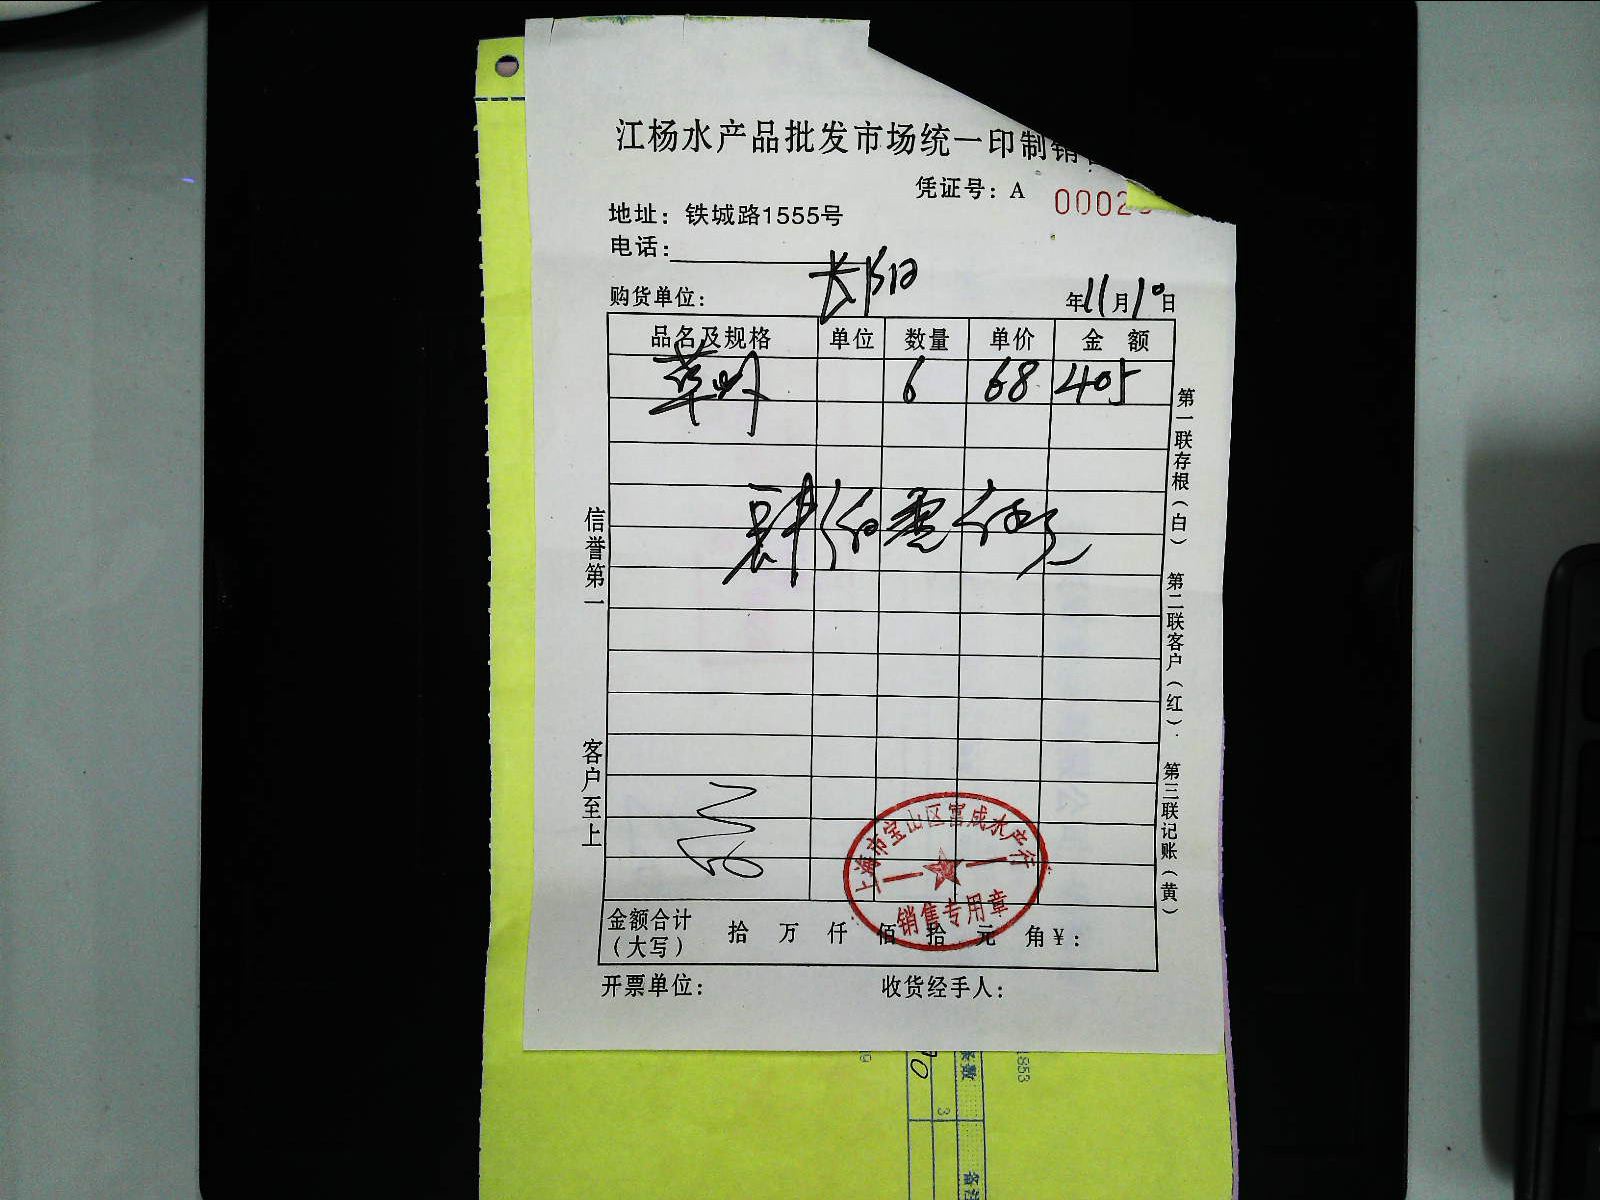 江杨水产品批发市场统一印制销
凭证号：A 0002
地址：铁城路1555号
电话：
购货单位： 长阳 年11月10日
品名及规格 单位 数量 单价 金 额
草虾 6 68 405
肆佰零伍元
信誉第一
客户至上
第一联存根（白） 第二联客户（红） 第三联记账（黄）
上海市宝山区富成水产行
销售专用章
金额合计（大写） 拾 万 仟 佰 拾 元 角¥：
开票单位： 收货经手人：
1853
张数
3
备注